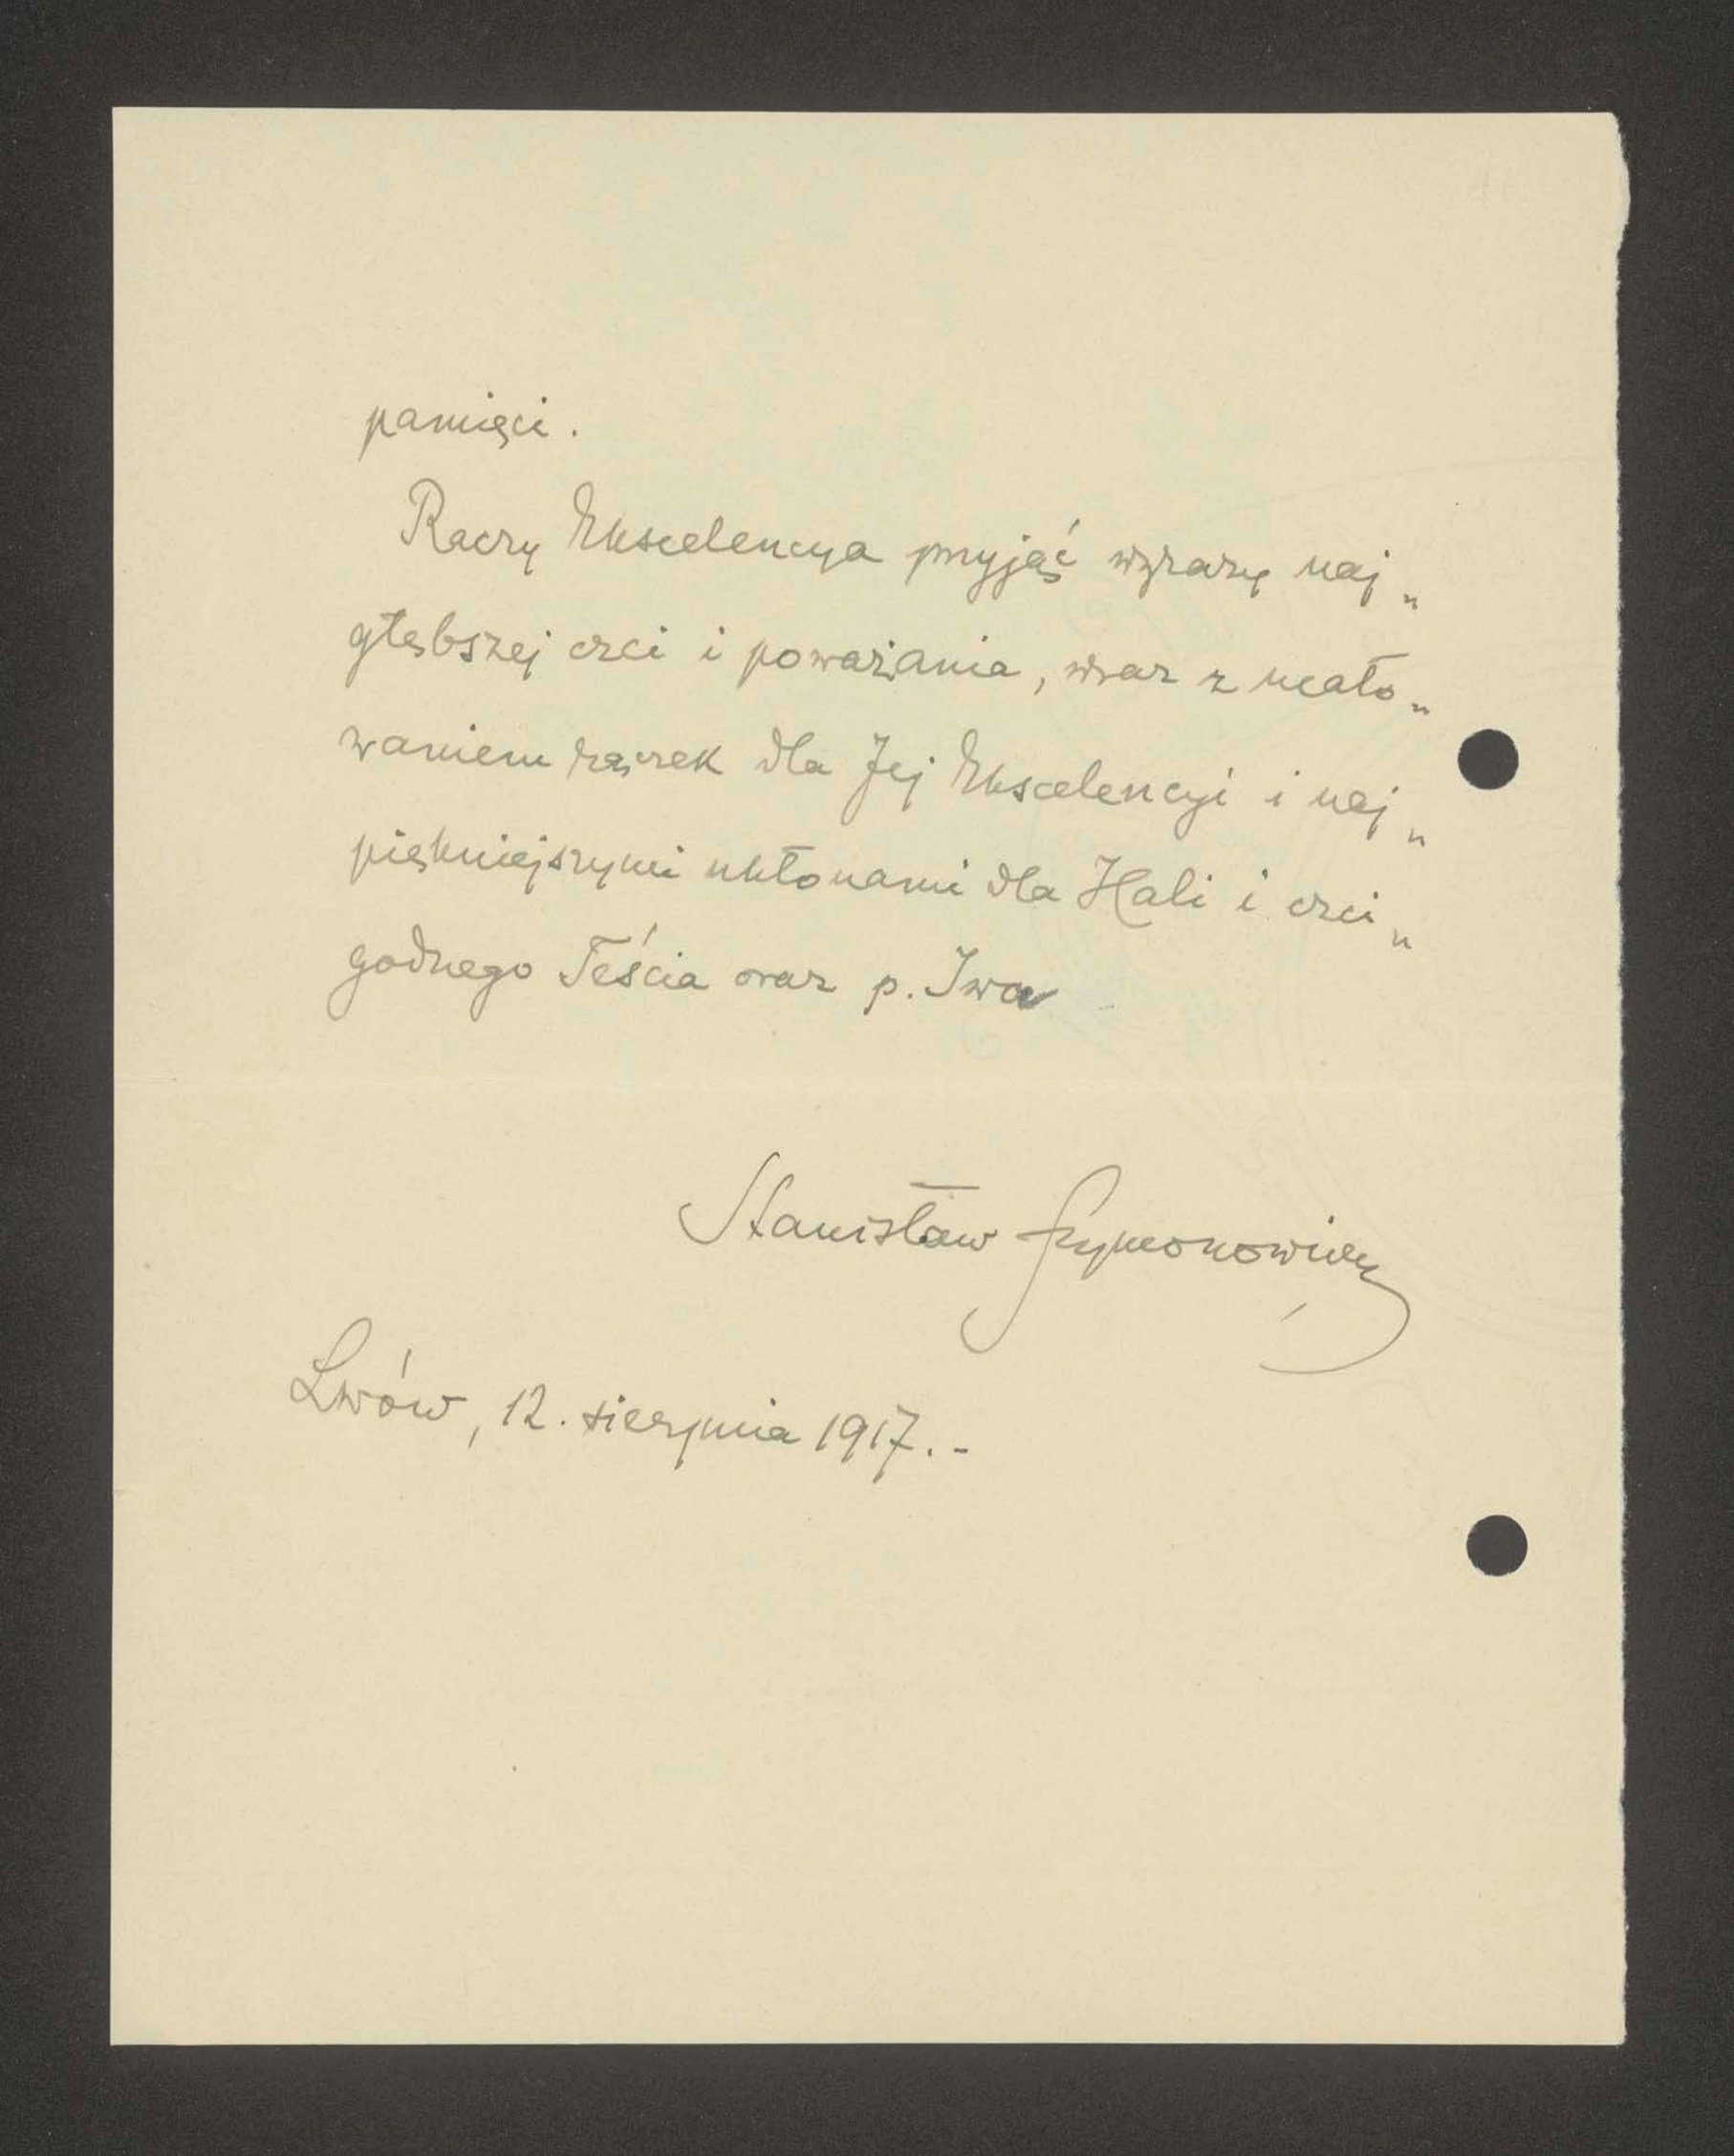 pamięci.
Raczy Ekscelencya przyjąć wyrazy naj„
głębszej czci i poważania, wraz z ucało„
waniem rączek dla Jej Ekscelencyi i naj„
piękniejszymi ukłonami dla Hali i czci„
godnego Teścia oraz p. Iwa
Stanisław Szymonowicz
Lwów, 12. sierpnia 1917.-